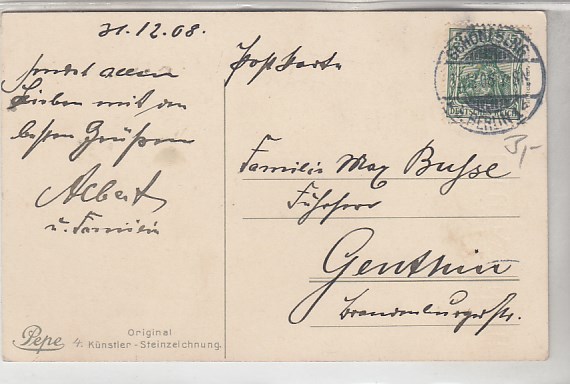 31.12.08.
sendet allen
Lieben mit den
besten Grüßen
Albert
u. Familie
Postkarte
SCHÖNEBERG
BERLIN
DEUTSCHES REICH
3,-
Familie Max Busse
Fuhrherr
Genthin
Brandenburgerstr.
Pepe
Original
4. Künstler-Steinzeichnung.